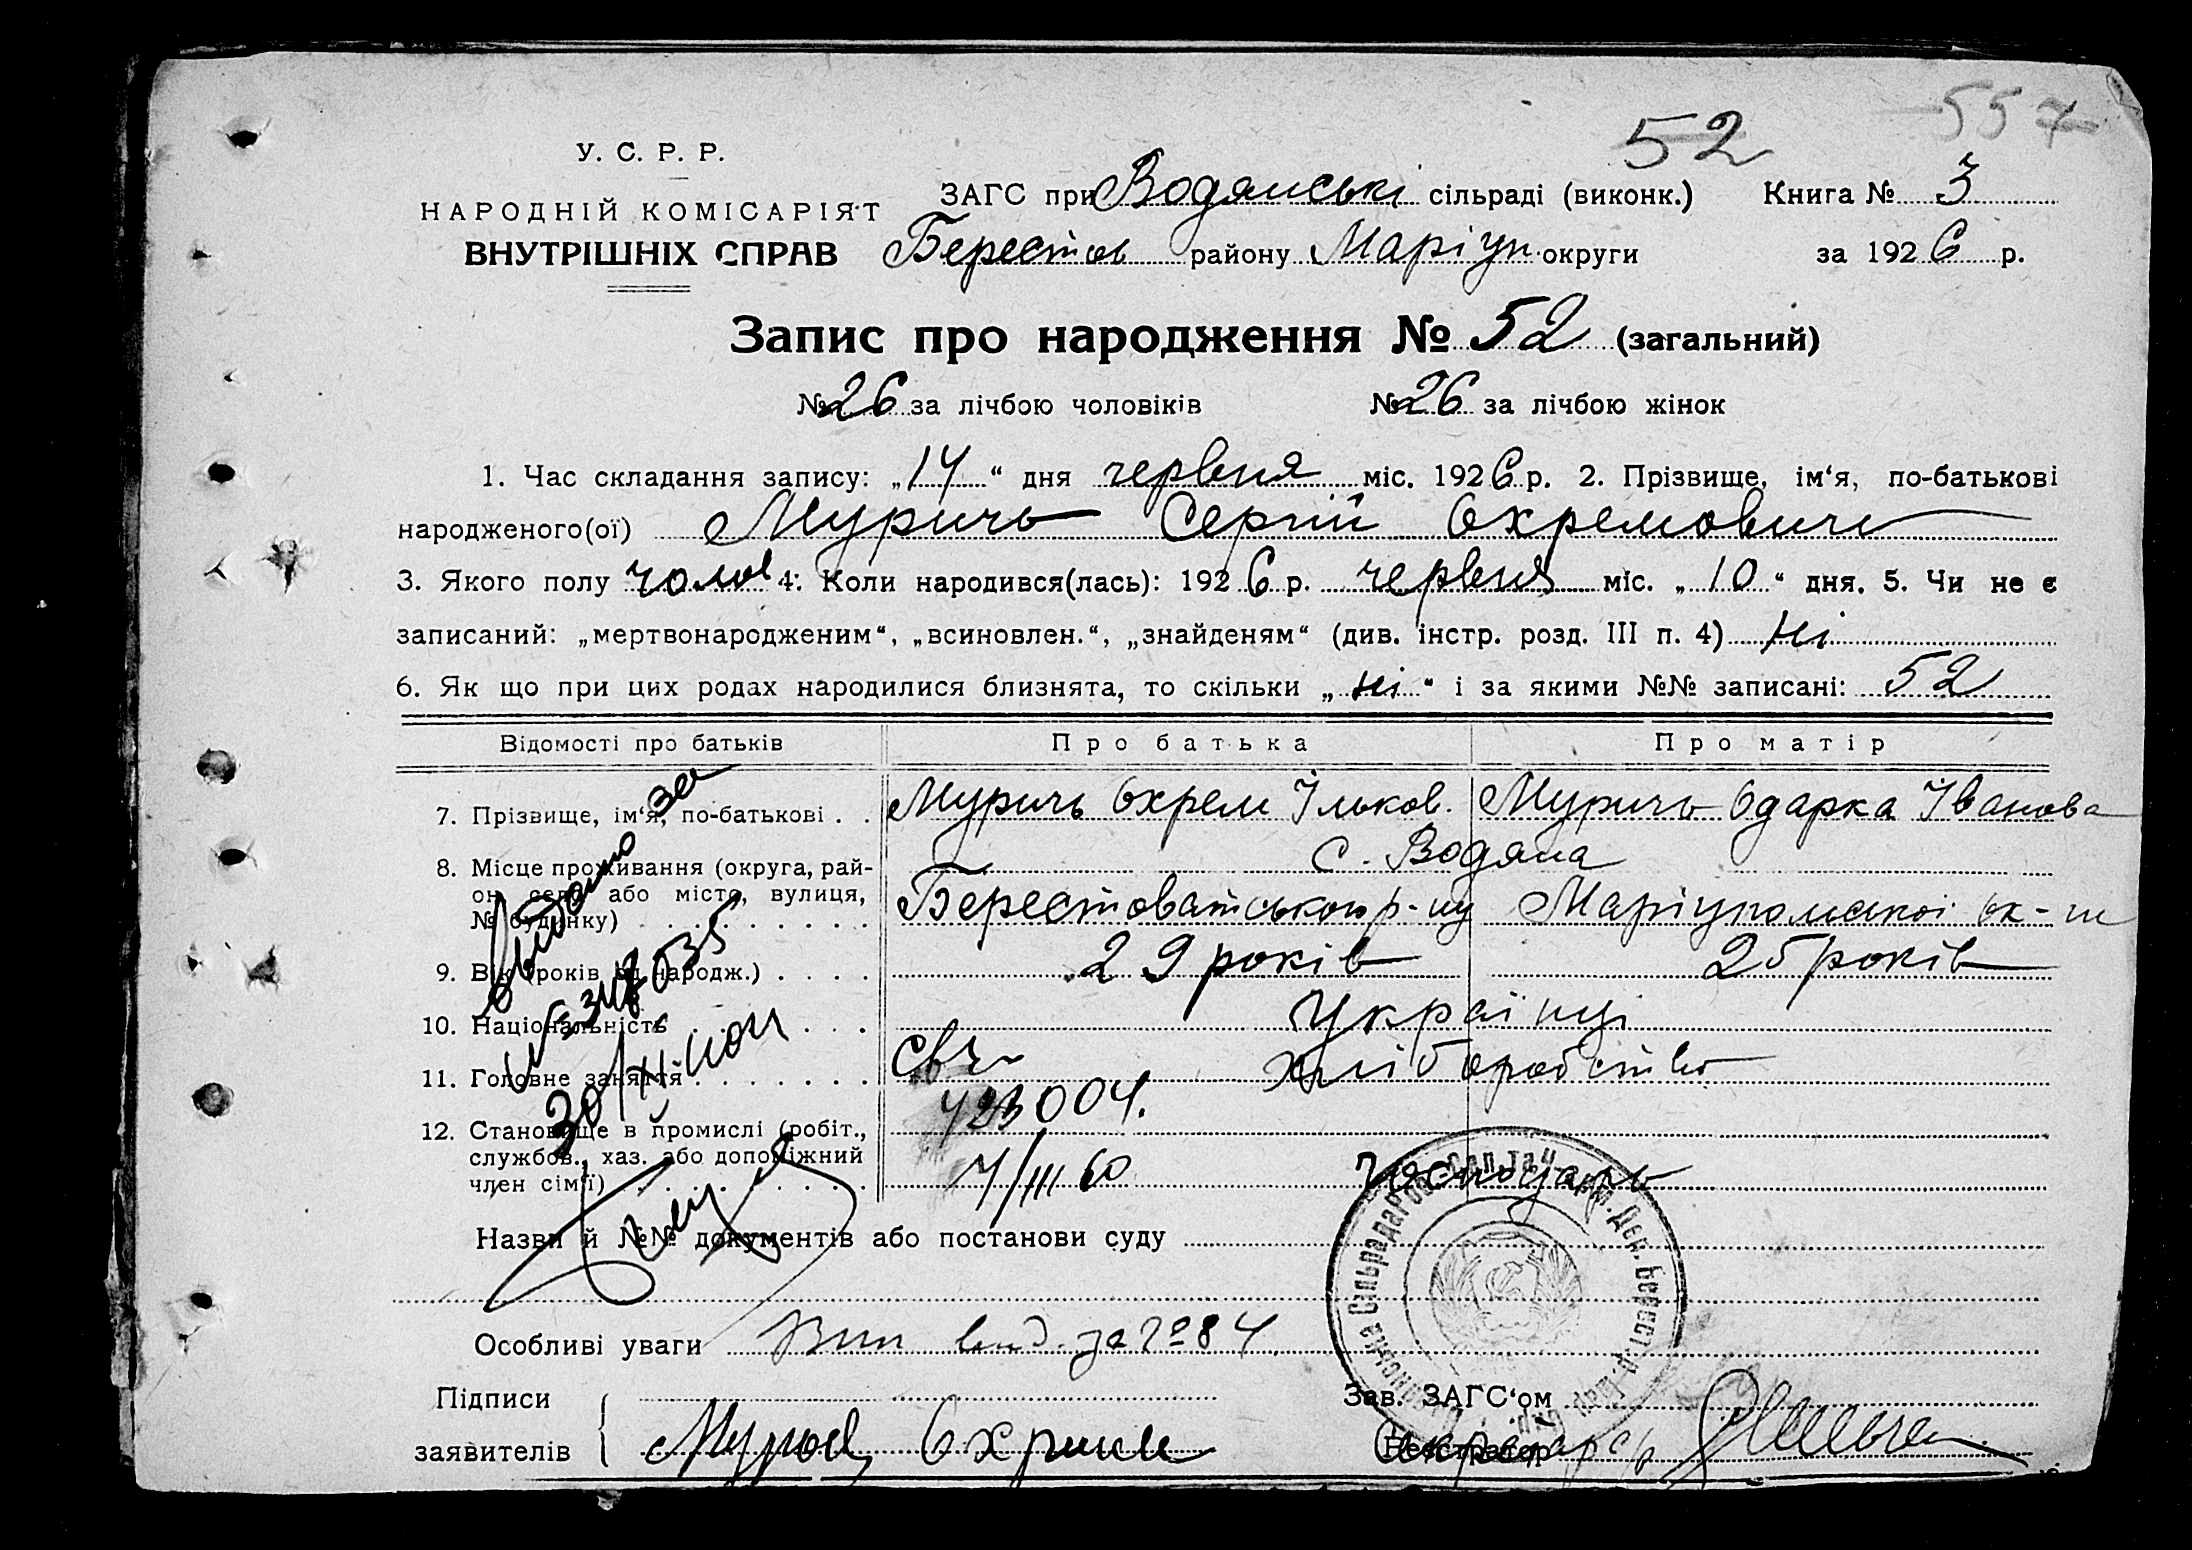 557
52
У. С. Р. Р.
НАРОДНІЙ КОМІСАРІЯТ
ВНУТРІШНІХ СПРАВ
ЗАГС при Водянські сільраді (виконк.) Книга № 3
Берестов району Маріуп. округи за 1926 р.
Запис про народження № 52 (загальний)
№ 26 за лічбою чоловіків № 26 за лічбою жінок
1. Час складання запису: „14“ дня червня міс. 1926 р. 2. Прізвище, ім‘я, по-батькові
народженого(ої) Муричь Сергій Охремовичь
3. Якого полу чолов 4. Коли народився(лась): 1926 р. червня міс. „10“ дня. 5. Чи не є
записаний: „мертвонародженим“, „всиновлен.“, „знайденям“ (див. інстр. розд. III п. 4) Ні
6. Як що при цих родах народилися близнята, то скільки „Ні“ і за якими №№ записані: 52
Відомості про батьків Про батька Про матір
7. Прізвище, ім‘я, по-батькові . . Муричь Охрем Ільков. Муричь Одарка Іванова
8. Місце проживання (округа, рай-
он, село або місто, вулиця,
№ будинку) . . . . . . . . .
с. Водяна
Берестоватського р-ну Маріупольскої ок-ги
9. Вік (років од народж.) . . . . 29 років 25 років
10. Національність . . . . . Українці
11. Головне заняття . . . . . . . Хліборобство
12. Становище в промислі (робіт.,
службов., хаз. або допоміжний
член сім‘ї) . . . . . . . . .
423004.
7/III 60
Назви й №№ документів або постанови суду
Особливі уваги
Підписи
заявителів
Зав. ЗАГС‘ом
Реєстратор
Секретар с/р